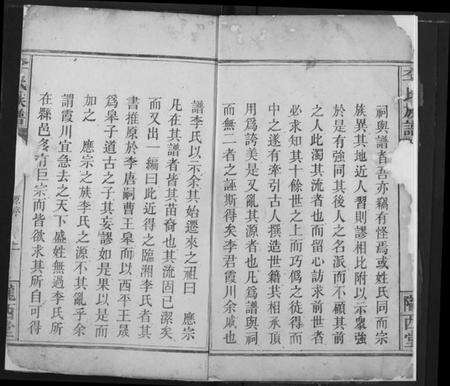 李氏族譜
祠與譜者吾亦竊有怪焉或姓氏同而宗
族異其地近人習則謬相比附以示衆強
於是有強同其後人之名派而不顧其前
之人此濁其流者也而留心訪求前世者
必求知其十餘世之上而巧偽之徒得而
中之遂有牽引古人撰造世籍其相承頂
用爲誇美是又亂其源者也凡爲譜與祠
而無二者之誣斯得矣李君霞川余戚也
隴西堂
譜李氏以示余其始遷來之祖曰 應宗
凡在其譜者皆其苗裔也其流固已潔矣
而又出一編曰此近得之臨湘李氏者其
書推原於李唐嗣曹王臯而以西平王晟
爲臯子道古之子其妄謬如是果以是而
加之 應宗之族李氏之源不其亂乎余
謂霞川宜急去之天下盛姓無過李氏所
在縣邑多有巨宗而皆欲求其所自可得
李氏族譜
隴西堂